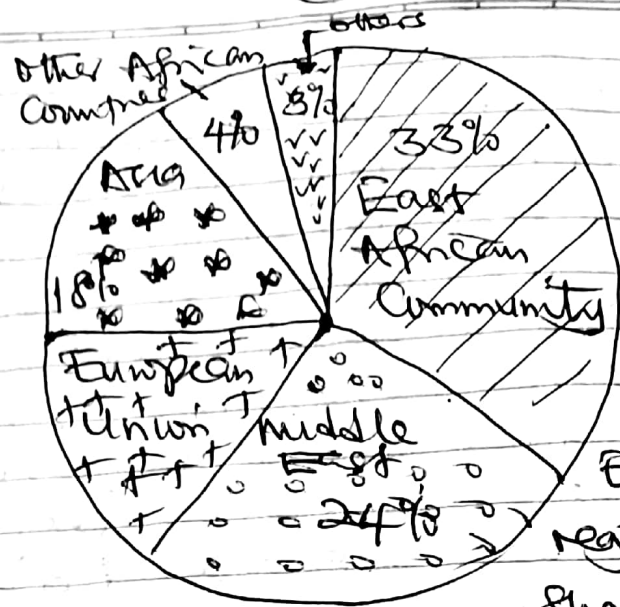 others
Other African
Countries
3%
4%
33%
East
African
Community
Asia
18%
European
Union
Middle
East
24%